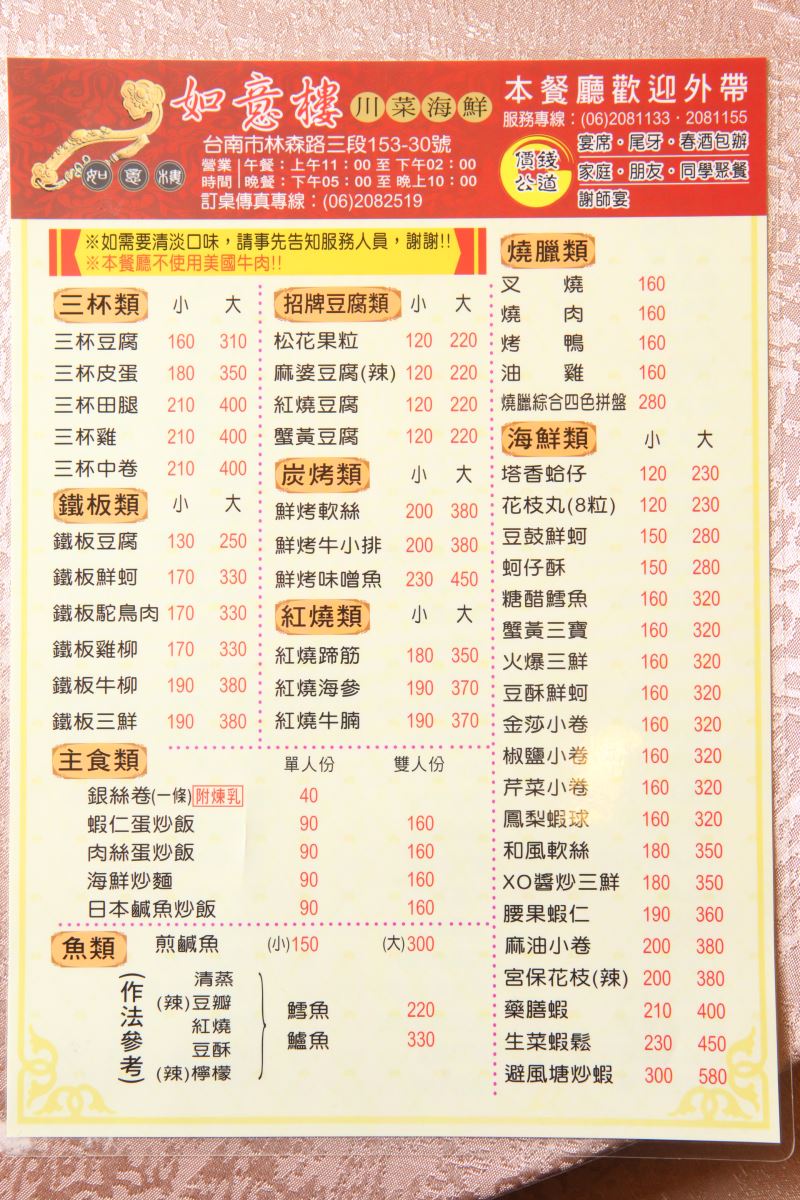 如意樓 川菜海鮮
如意樓
台南市林森路三段153-30號
營業時間
午餐：上午11：00 至 下午02：00
晚餐：下午05：00 至 晚上10：00
訂桌傳真專線：(06)2082519
本餐廳歡迎外帶
服務專線：(06)2081133・2081155
價錢公道
宴席・尾牙・春酒包辦
家庭・朋友・同學聚餐
謝師宴
※如需要清淡口味，請事先告知服務人員，謝謝!!
※本餐廳不使用美國牛肉!!
三杯類 小 大
三杯豆腐 160 310
三杯皮蛋 180 350
三杯田腿 210 400
三杯雞 210 400
三杯中卷 210 400
鐵板類 小 大
鐵板豆腐 130 250
鐵板鮮蚵 170 330
鐵板駝鳥肉 170 330
鐵板雞柳 170 330
鐵板牛柳 190 380
鐵板三鮮 190 380
招牌豆腐類 小 大
松花果粒 120 220
麻婆豆腐(辣) 120 220
紅燒豆腐 120 220
蟹黃豆腐 120 220
炭烤類 小 大
鮮烤軟絲 200 380
鮮烤牛小排 200 380
鮮烤味噌魚 230 450
紅燒類 小 大
紅燒蹄筋 180 350
紅燒海參 190 370
紅燒牛腩 190 370
主食類 單人份 雙人份
銀絲卷(一條)附煉乳 40
蝦仁蛋炒飯 90 160
肉絲蛋炒飯 90 160
海鮮炒麵 90 160
日本鹹魚炒飯 90 160
魚類 煎鹹魚 (小)150 (大)300
(作法參考)
清蒸
(辣)豆瓣
紅燒
豆酥
(辣)檸檬
鱈魚 220
鱸魚 330
燒臘類
叉燒 160
燒肉 160
烤鴨 160
油雞 160
燒臘綜合四色拼盤 280
海鮮類 小 大
塔香蛤仔 120 230
花枝丸(8粒) 120 230
豆鼓鮮蚵 150 280
蚵仔酥 150 280
糖醋鱈魚 160 320
蟹黃三寶 160 320
火爆三鮮 160 320
豆酥鮮蚵 160 320
金莎小卷 160 320
椒鹽小卷 160 320
芹菜小卷 160 320
鳳梨蝦球 160 320
和風軟絲 180 350
XO醬炒三鮮 180 350
腰果蝦仁 190 360
麻油小卷 200 380
宮保花枝(辣) 200 380
藥膳蝦 210 400
生菜蝦鬆 230 450
避風塘炒蝦 300 580